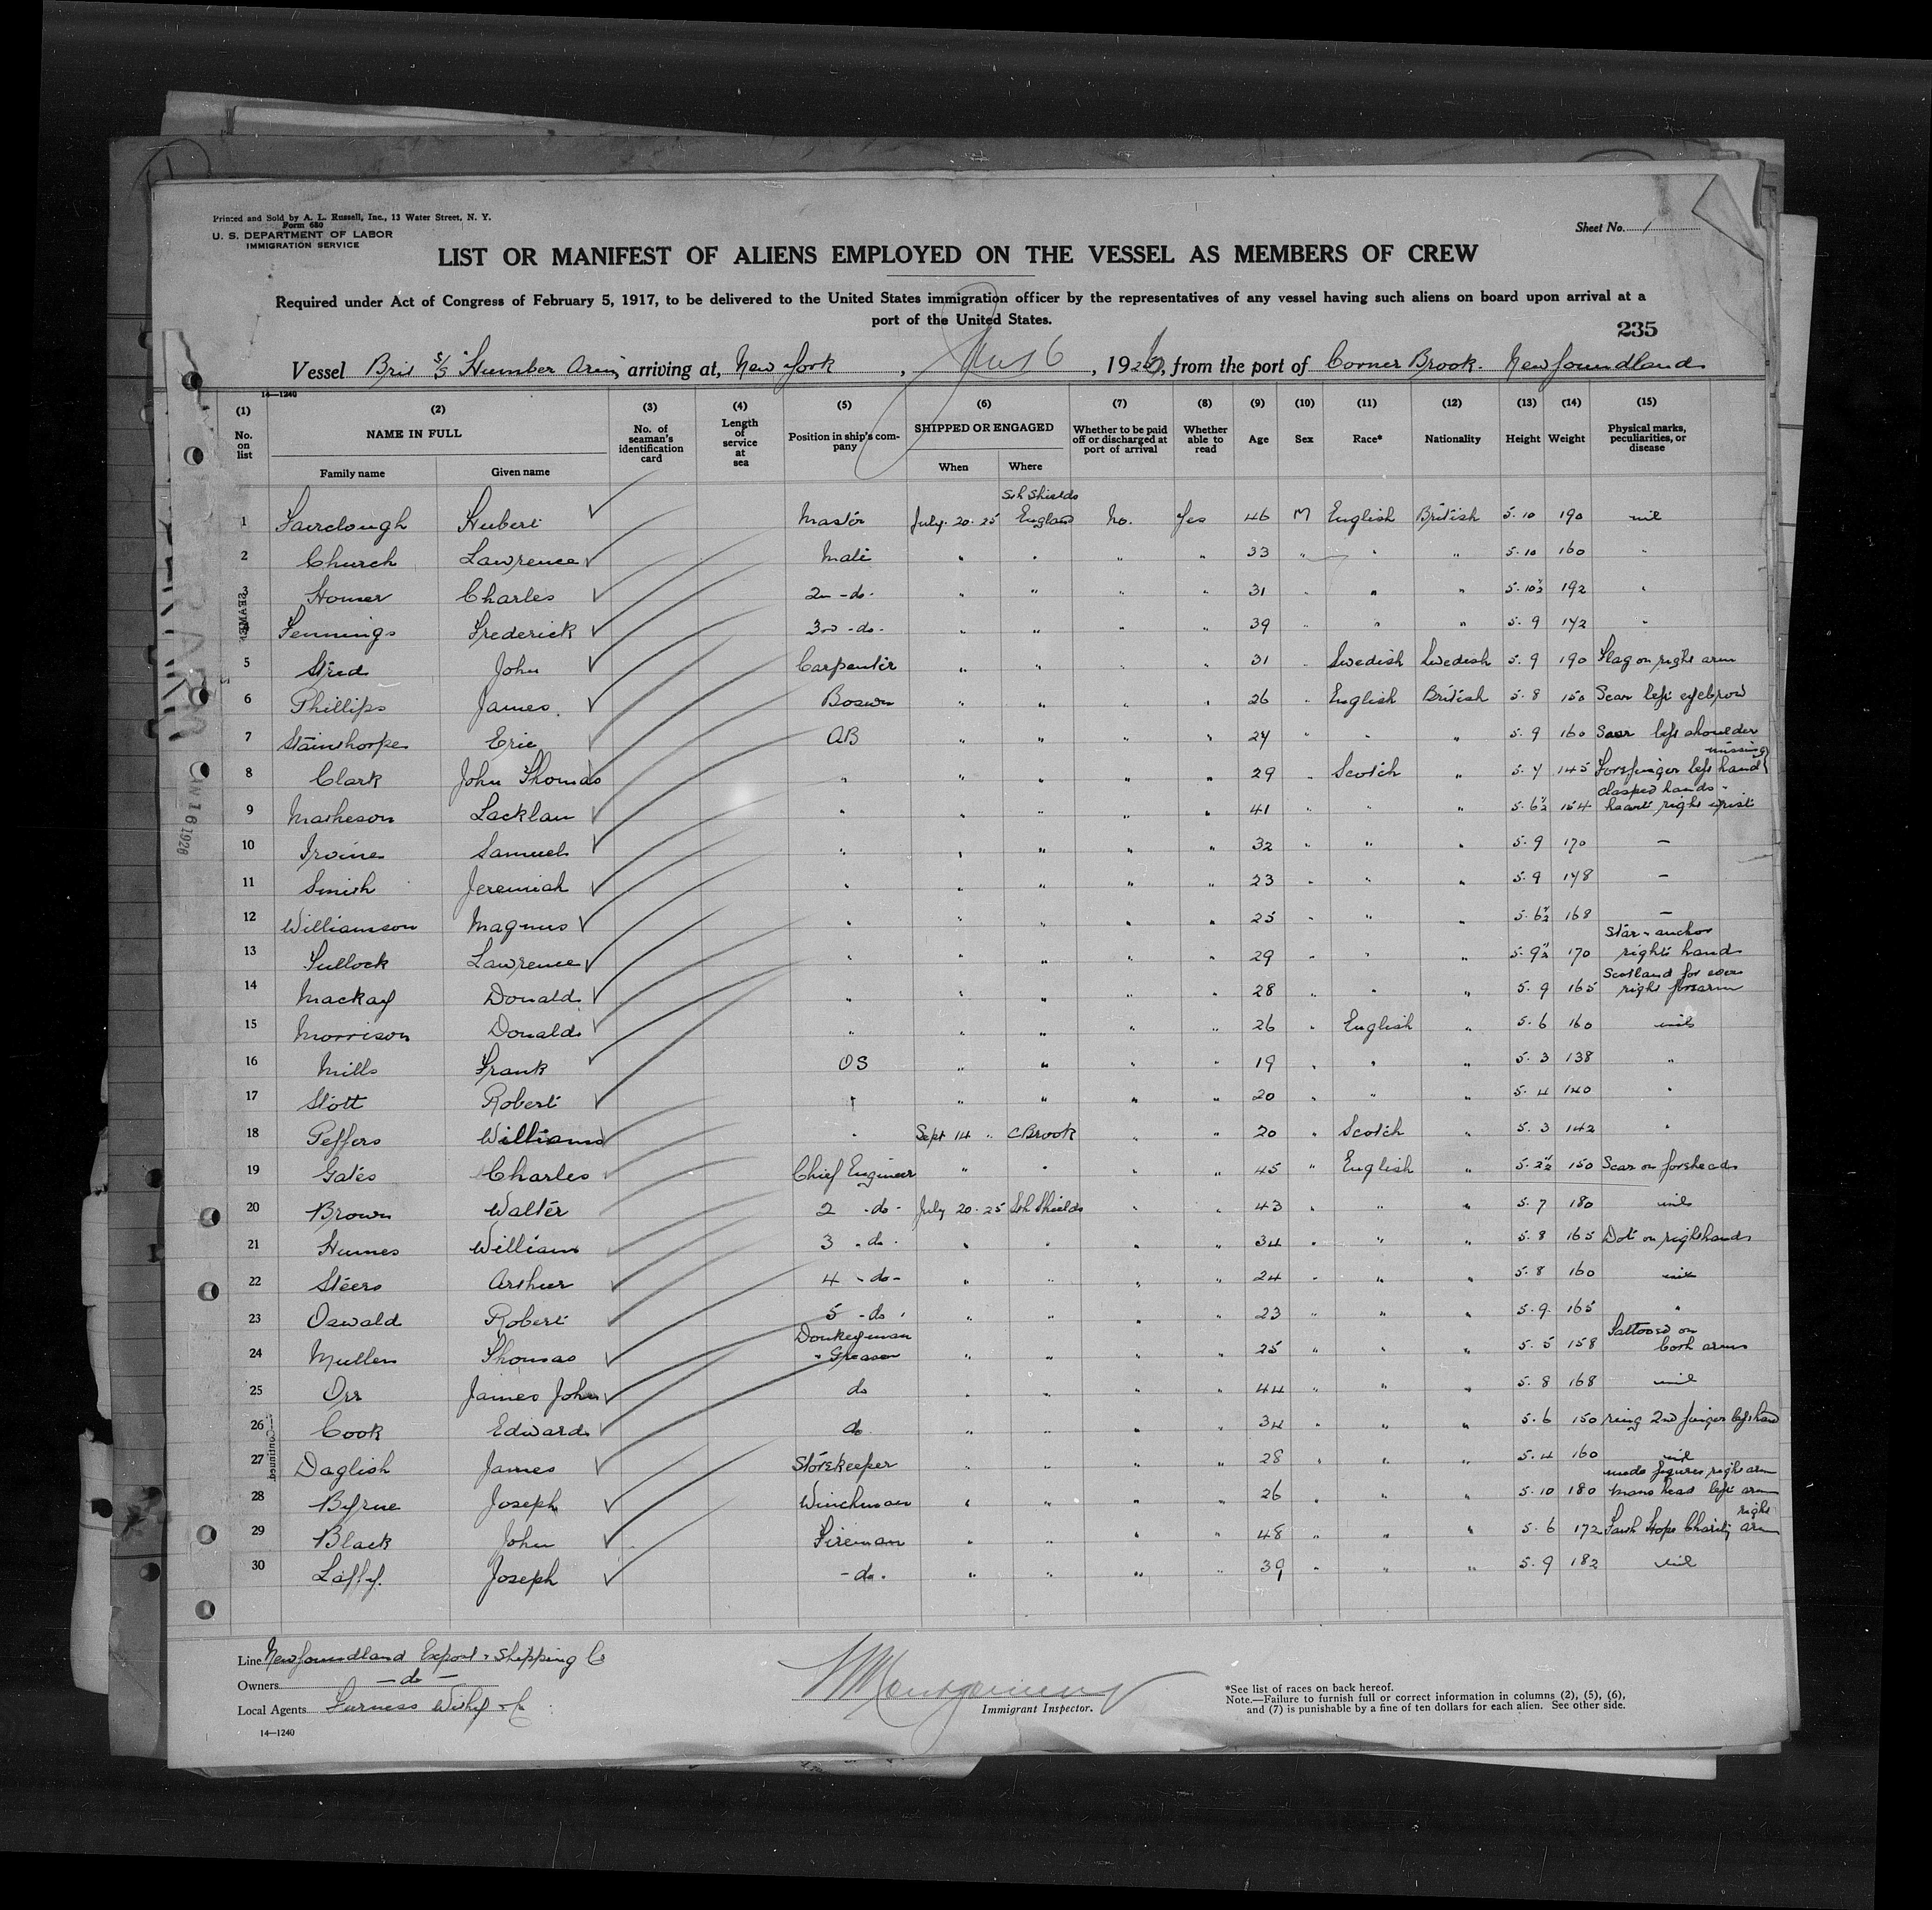 Printed and Sold by A. L. Russell, Inc., 13 Water Street, N. Y.
Form 680
U. S. DEPARTMENT OF LABOR
IMMIGRATION SERVICE
Sheet No. 1
LIST OR MANIFEST OF ALIENS EMPLOYED ON THE VESSEL AS MEMBERS OF CREW
Required under Act of Congress of February 5, 1917, to be delivered to the United States immigration officer by the representatives of any vessel having such aliens on board upon arrival at a
port of the United States.
235
Vessel Brit S/S "Humber Arm", arriving at, New York, 16, 1926, from the port of Corner Brook. Newfoundland
14—1240
(1) (2) (3) (4) (5) (6) (7) (8) (9) (10) (11) (12) (13) (14) (15)
No. on list NAME IN FULL Family name Given name No. of seaman's identification card Length of service at sea Position in ship's company SHIPPED OR ENGAGED When Where Whether to be paid off or discharged at port of arrival Whether able to read Age Sex Race* Nationality Height Weight Physical marks, peculiarities, or disease
1 Fairclough Hubert Master July. 20. 25 Sth Shields England No. Yes 46 M English British 5. 10 190 nil
2 Church Lawrence Mate " " " " 33 " " " 5. 10 160 "
3 Homer Charles 2nd -do- " " " " 31 " " " 5. 10½ 192 "
4 Jennings Frederick 3rd -do- " " " " 39 " " " 5. 9 142 "
5 Sted John Carpenter " " " " 31 " Swedish Swedish 5. 9 190 Flag on right arm
6 Phillips James Bosun " " " " 26 " English British 5. 8 150 Scar left eyebrow
7 Stainthorpe Eric AB " " " " 24 " " " 5. 9 160 Scar left shoulder
8 Clark John Thomas " " " " " 29 " Scotch " 5. 4 145 Forefinger left hand missing
9 Matheson Lacklan " " " " " 41 " " " 5. 6½ 154 clasped hands - heart right wrist
10 Irvine Samuel " " " " " 32 " " " 5. 9 170 —
11 Smith Jeremiah " " " " " 23 " " " 5. 9 148 —
12 Williamson Magnus " " " " " 25 " " " 5. 6½ 168 —
13 Tullock Lawrence " " " " " 29 " " " 5. 9½ 170 Star - anchor right hand
14 Mackay Donald " " " " " 28 " " " 5. 9 165 Scotland for ever right forearm
15 Morrison Donald " " " " " 26 " English " 5. 6 160 nil
16 Mills Frank OS " " " " 19 " " " 5. 3 138 "
17 Stott Robert " " " " " 20 " " " 5. 4 140 "
18 Peffers William " Sept 14 " C Brook " " 20 " Scotch " 5. 3 142 "
19 Gates Charles Chief Engineer " " " " 45 " English " 5. 2½ 150 Scar on forehead
20 Brown Walter 2 -do- July 20. 25 Sth Shields " " 43 " " " 5. 7 180 nil
21 Humes William 3 -do- " " " " 34 " " " 5. 8 165 Dot on right hand
22 Steers Arthur 4 -do- " " " " 24 " " " 5. 8 160 nil
23 Oswald Robert 5 -do- " " " " 23 " " " 5. 9. 165 "
24 Mullen Thomas Donkeyman - Greaser " " " " 25 " " " 5. 5 158 Tattooed on both arms
25 Orr James John do " " " " 44 " " " 5. 8 168 nil
26 Cook Edward do " " " " 34 " " " 5. 6 150 ring 2nd finger left hand
27 Daglish James Storekeeper " " " " 28 " " " 5. 4 160 nil
28 Byrne Joseph Winchman " " " " 26 " " " 5. 10 180 nude figures right arm mans head left arm
29 Black John Fireman " " " " 48 " " " 5. 6 172 Faith Hope Charity right arm
30 Laffy. Joseph -do- " " " " 39 " " " 5. 9 182 nil
SEAMEN
—Continued
JAN 16 1926
Line Newfoundland Export & Shipping Co
Owners —do—
Local Agents Furness Withy & Co
14—1240
Montgomery
Immigrant Inspector.
*See list of races on back hereof.
Note.—Failure to furnish full or correct information in columns (2), (5), (6),
and (7) is punishable by a fine of ten dollars for each alien. See other side.